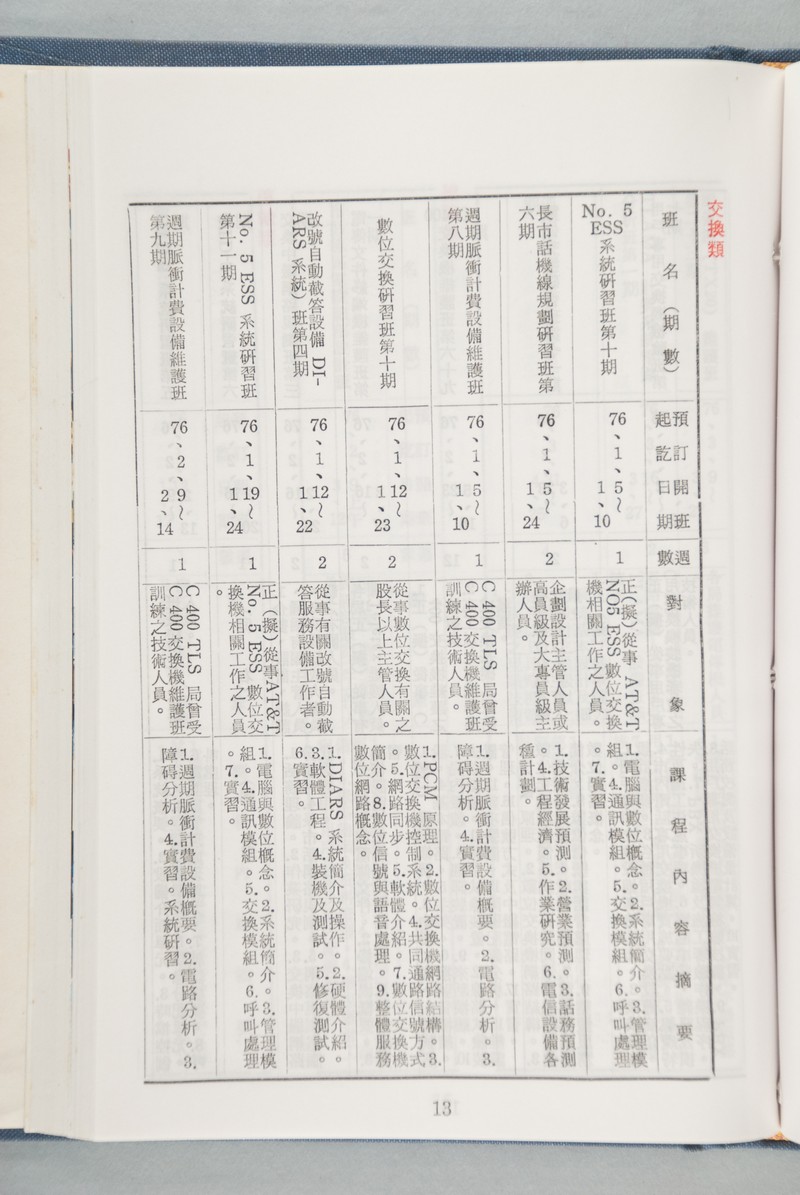 交換類
班名（期數）
預訂開班
起訖日期
週數
對象
課程內容摘要
No. 5
ESS
系統研習班第十期
76、1、5～
1、10
1
正(擬)從事 AT&T
NO5 ESS 數位交換
機相關工作之人員。
1.電腦與數位概念。2.系統簡介。3.管理模
組。4.通訊模組。5.交換模組。6.呼叫處理
。7.實習。
長市話機線規劃研習班第
六期
76、1、5～
1、24
2
企劃設計主管人員或
高員級及大專員級主
辦人員。
1.技術發展預測。2.營業預測。3.話務預測
。4.工程經濟。5.作業研究。6.電信設備各
種計劃。
週期脈衝計費設備維護班
第八期
76、1、5～
1、10
1
C 400 TLS 局曾受
C 400 交換機維護班
訓練之技術人員。
1.週期脈衝計費設備概要。2.電路分析。3.
障碍分析。4.實習。
數位交換研習班第十期
76、1、12～
1、23
2
從事數位交換有關之
股長以上主管人員。
1.PCM 原理。2.數位交換機網路結構。3.
數位交換機控制系統。4.共同通路信號方式
。5.網路同步。5.軟體介紹。7.數位交換機
簡介。8.數位信號與語音處理。9.整體服務
數位網路概念。
改號自動截答設備 DI-
ARS 系統）班第四期
76、1、12～
1、22
2
從事有關改號自動截
答服務設備工作者。
1.DIARS 系統簡介及操作。2.硬體介紹。
3.軟體工程。4.裝機及測試。5.修復測試。
6.實習。
No. 5 ESS 系統研習班
第十一期
76、1、19～
1、24
1
正（擬）從事AT&T
No. 5 ESS 數位交
換機相關工作之人員
。
1.電腦與數位概念。2.系統簡介。3.管理模
組。4.通訊模組。5.交換模組。6.呼叫處理
。7.實習。
週期脈衝計費設備維護班
第九期
76、2、9～
2、14
1
C 400 TLS 局曾受
C 400 交換機維護班
訓練之技術人員。
1.週期脈衝計費設備概要。2.電路分析。3.
障碍分析。4.實習。系統研習。
13